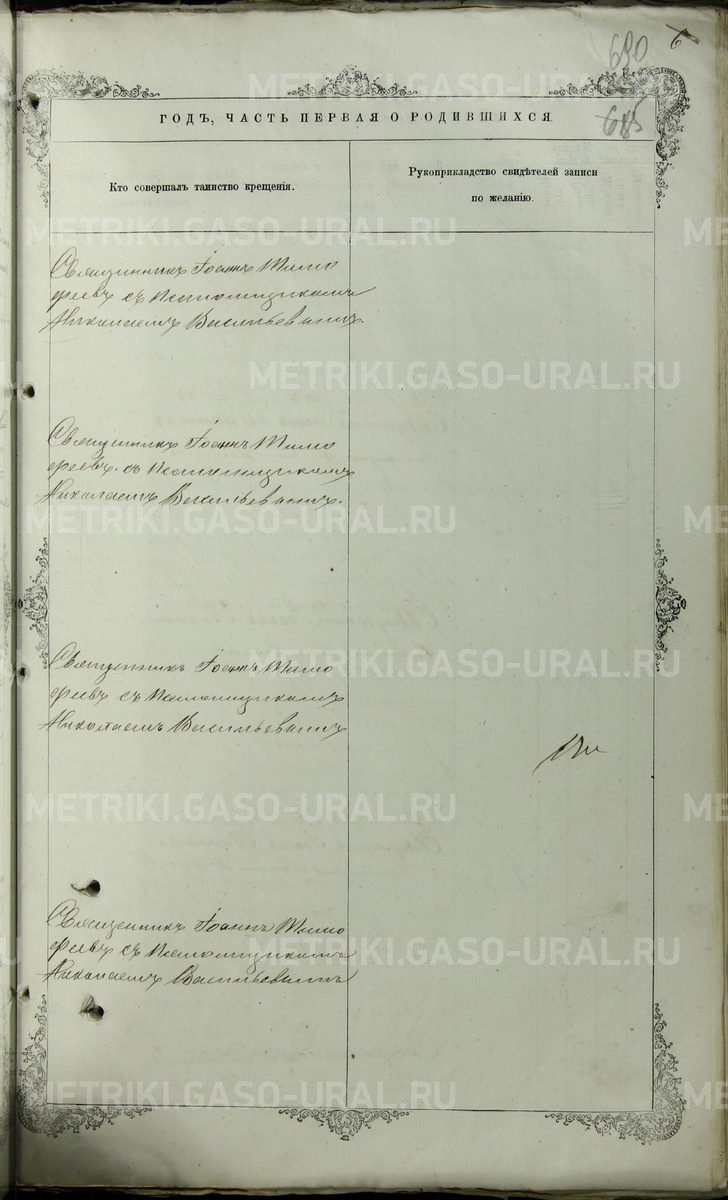 690
6
685
ГОДЪ, ЧАСТЬ ПЕРВАЯ О РОДИВШИХСЯ.
Кто совершалъ таинство крещенія.
Рукоприкладство свидѣтелей записи
по желанію.
Священникъ Іоаннъ Тимо
феевъ съ Псаломщикомъ
Николаемъ Васильевымъ.
Священникъ Іоаннъ Тимо
феевъ съ Псаломщикомъ
Николаемъ Васильевымъ.
Священникъ Іоаннъ Тимо
феевъ съ Псаломщикомъ
Николаемъ Васильевымъ
Священникъ Іоаннъ Тимо
феевъ съ Псаломщикомъ
Николаемъ Васильевымъ
METRIKI.GASO-URAL.RU
METRIKI.GASO-URAL.RU
METRIKI.GASO-URAL.RU
METRIKI.GASO-URAL.RU
METRIKI.GASO-URAL.RU
METRIKI.GASO-URAL.RU
METRIKI.GASO-URAL.RU
METRIKI.GASO-URAL.RU